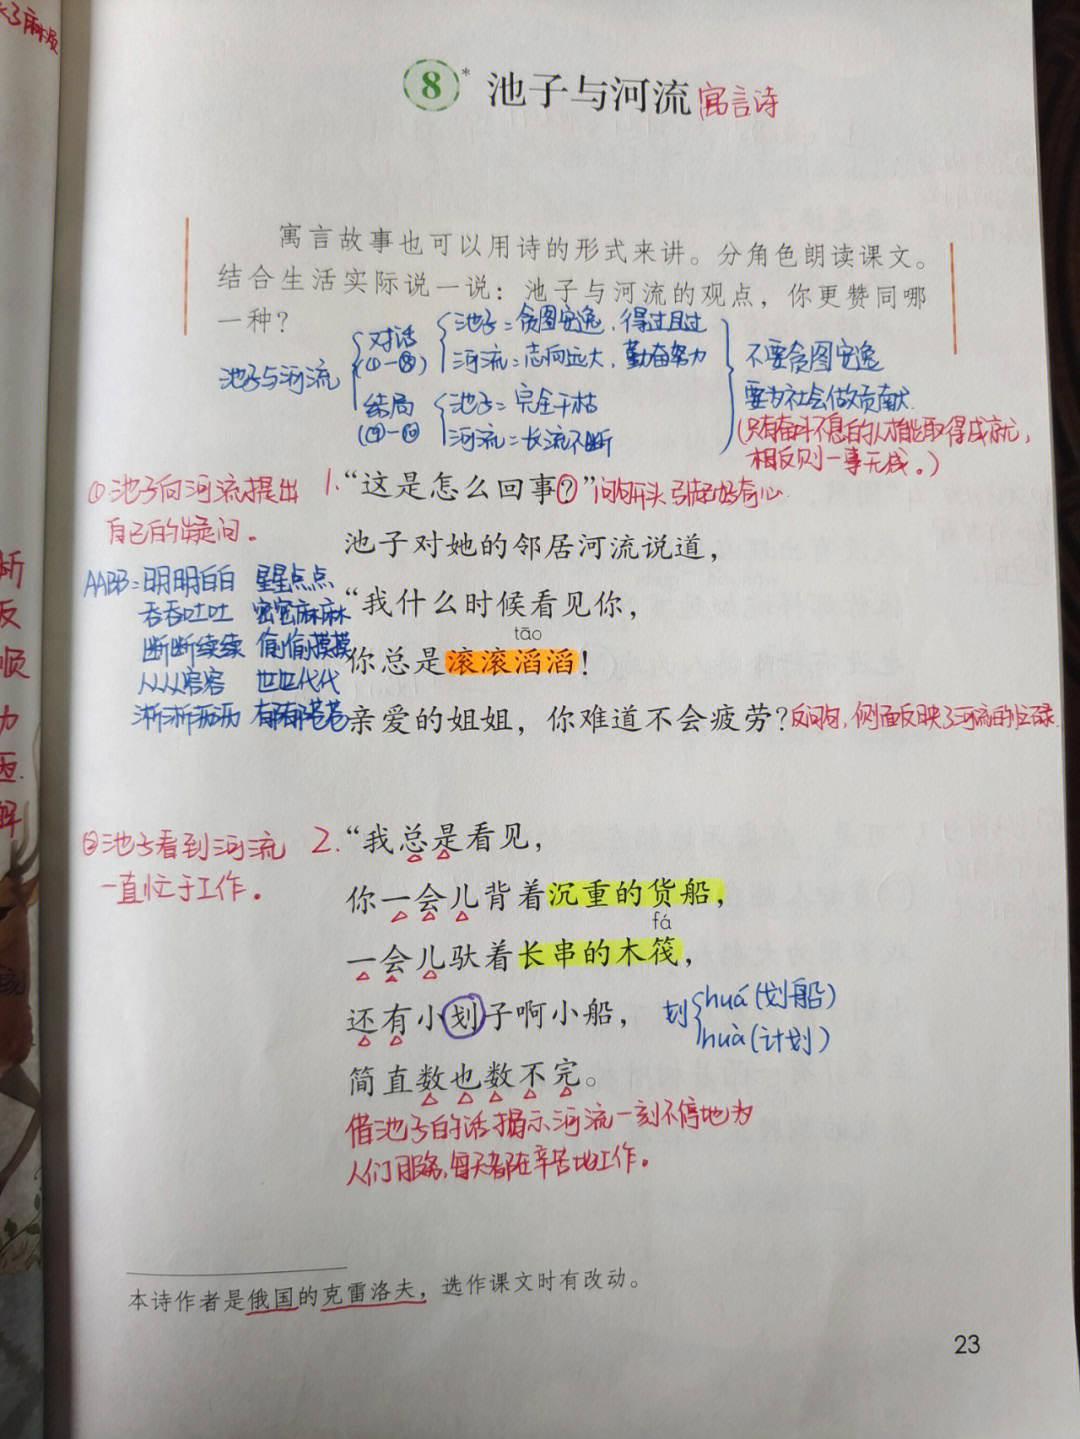 8* 池子与河流 寓言诗
寓言故事也可以用诗的形式来讲。分角色朗读课文。
结合生活实际说一说：池子与河流的观点，你更赞同哪
一种？
池子与河流
对话
(①-⑧)
池子：贪图安逸、得过且过
河流：志向远大、勤奋努力
结局
(⑨-⑩)
池子：完全干枯
河流：长流不断
不要贪图安逸
要为社会做贡献.
(只有奋斗不息的人才能取得成就，
相反则一事无成。)
①池子向河流提出
自己的疑问。
1.“这是怎么回事？” 问句开头引起好奇心.
池子对她的邻居河流说道，
“我什么时候看见你，
tāo
你总是滚滚滔滔！
亲爱的姐姐，你难道不会疲劳？反问句，侧面反映了河流的忙碌.
AABB：明明白白 星星点点
吞吞吐吐 密密麻麻
断断续续 偷偷摸摸
从从容容 世世代代
淅淅沥沥 郁郁苍苍
②池子看到河流
一直忙于工作。
2.“我总是看见，
你一会儿背着沉重的货船，
fá
一会儿驮着长串的木筏，
还有小划子啊小船，
划 huá(划船)
huà(计划)
简直数也数不完。
借池子的话揭示河流一刻不停地为
人们服务,每天都在辛苦地工作。
本诗作者是俄国的克雷洛夫，选作课文时有改动。
23